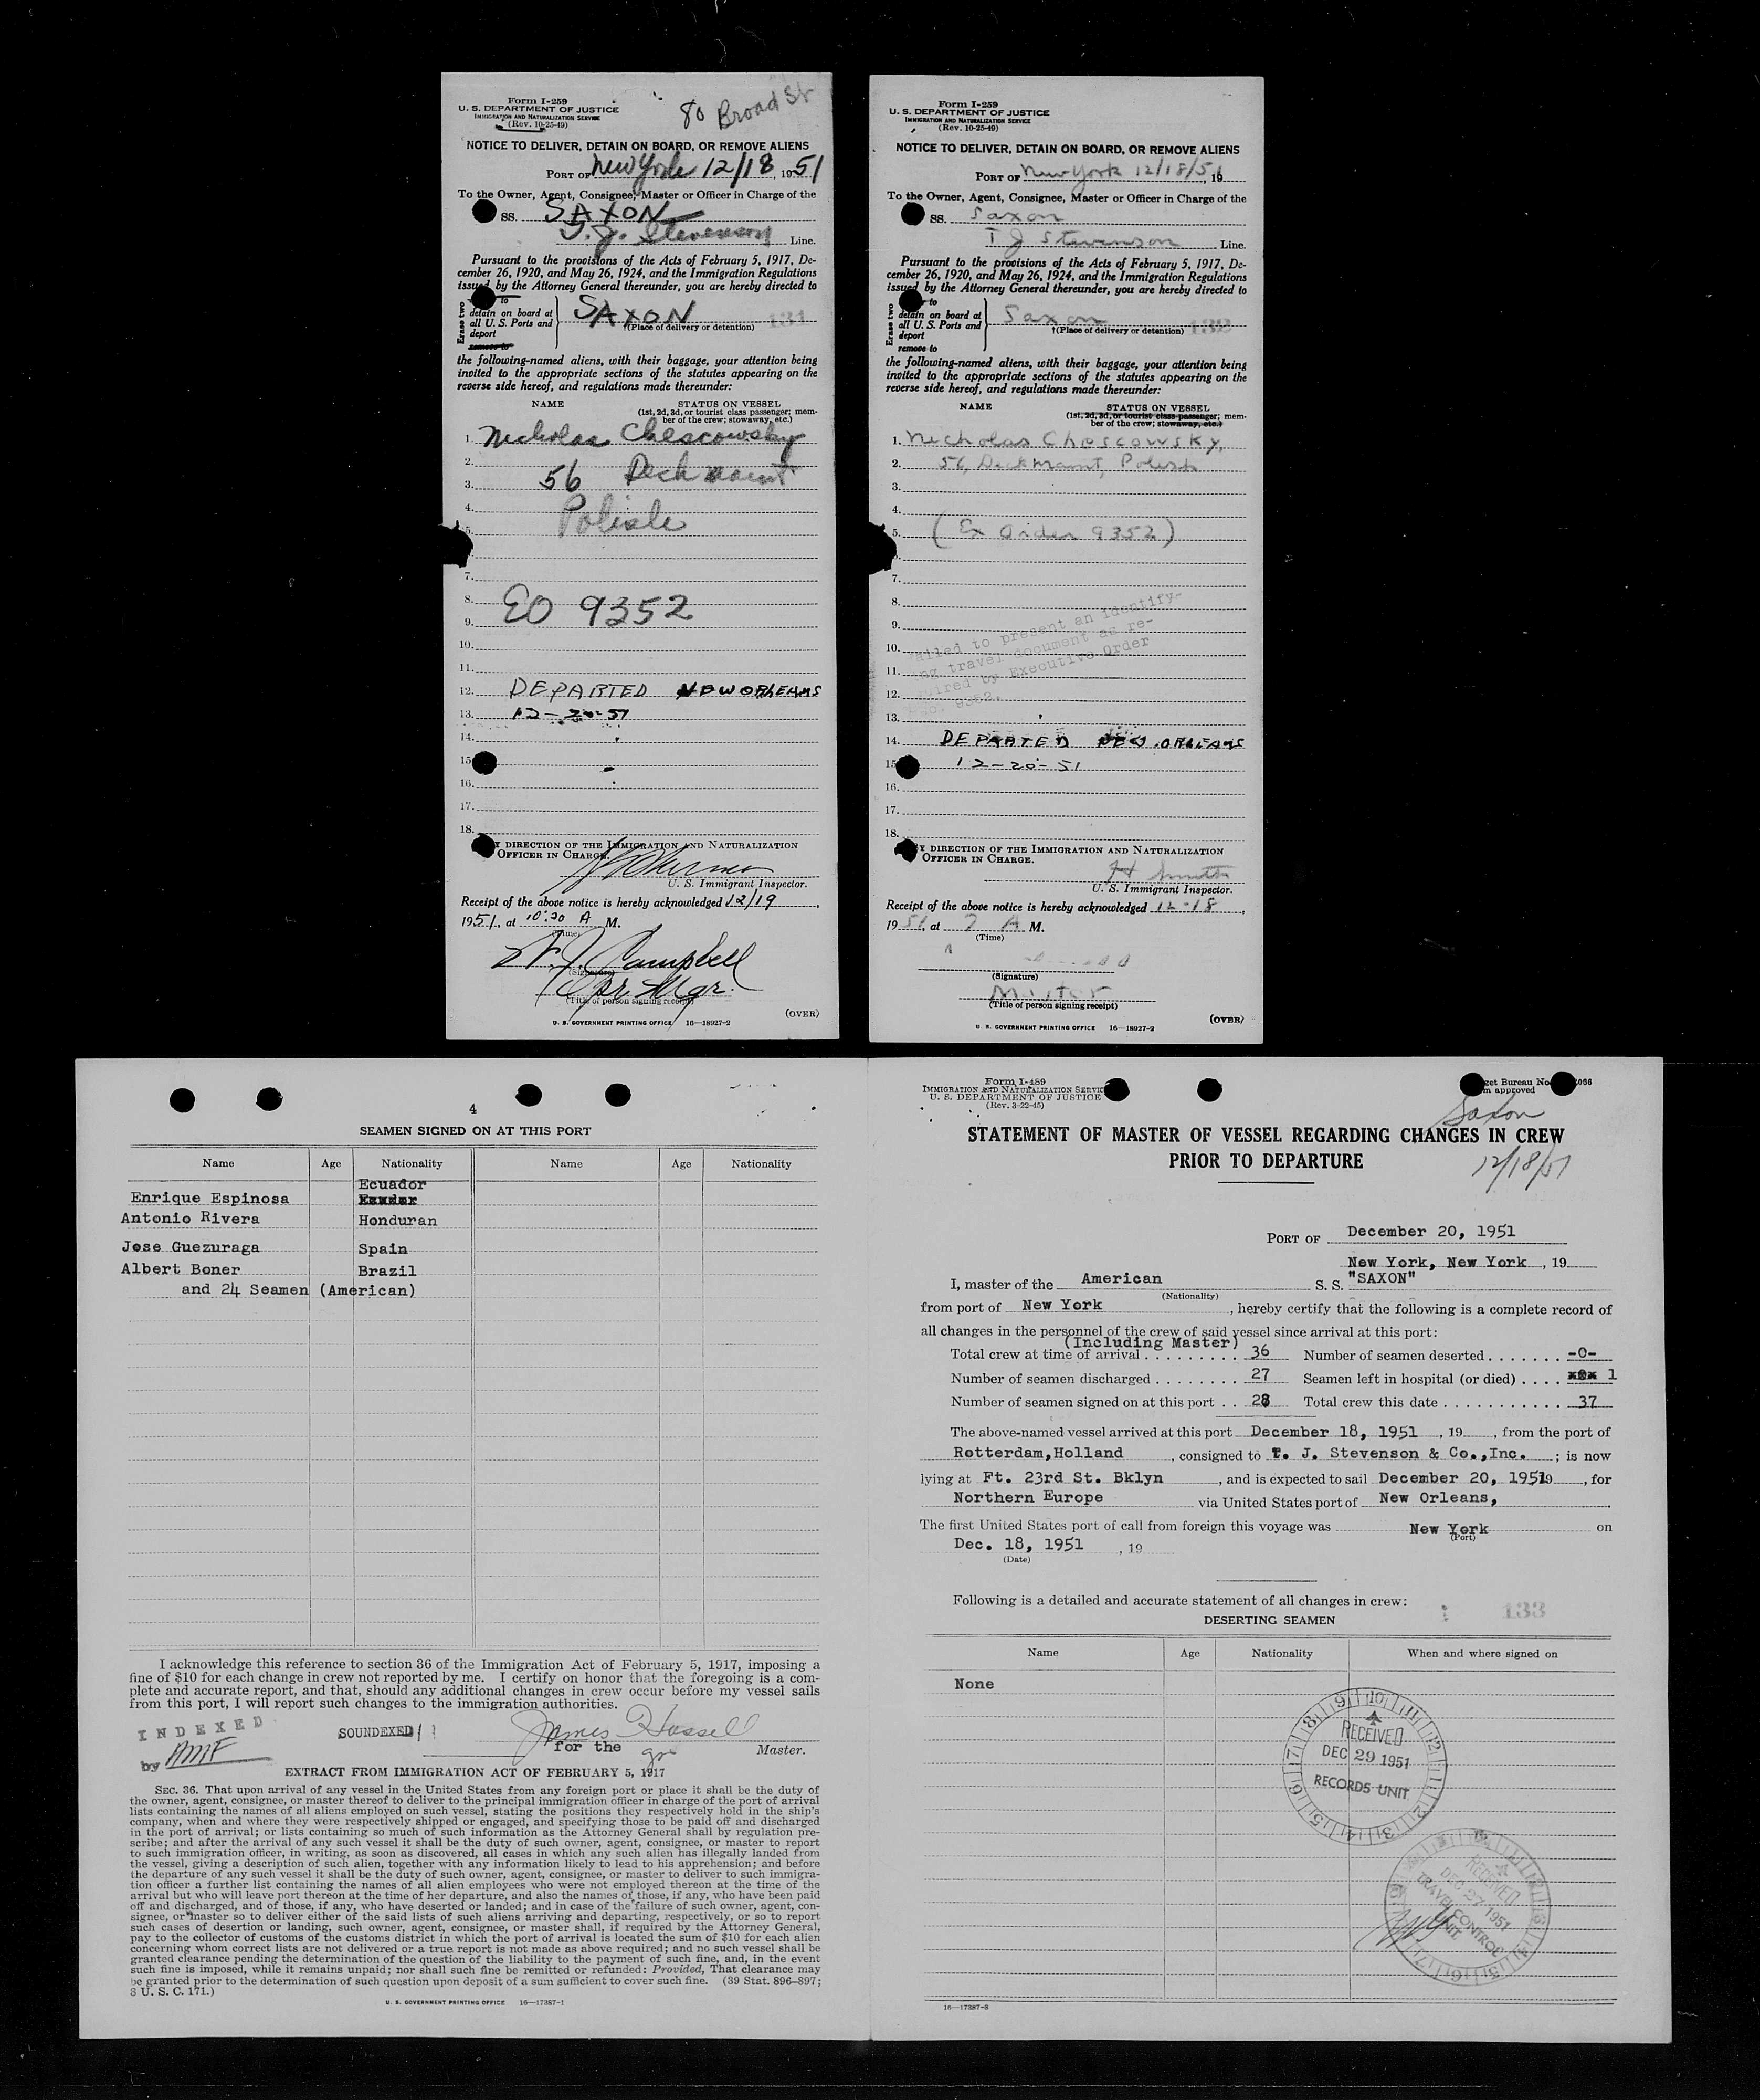 Form I-259
U. S. DEPARTMENT OF JUSTICE
IMMIGRATION AND NATURALIZATION SERVICE
(Rev. 10-25-49)
80 Broad St
NOTICE TO DELIVER, DETAIN ON BOARD, OR REMOVE ALIENS
PORT OF New York 12/18, 1951
To the Owner, Agent, Consignee, Master or Officer in Charge of the
SS. SAXON
T. J. Stevenson Line.
Pursuant to the provisions of the Acts of February 5, 1917, De-
cember 26, 1920, and May 26, 1924, and the Immigration Regulations
issued by the Attorney General thereunder, you are hereby directed to
Erase two
to
detain on board at
all U. S. Ports and
deport
remove to
SAXON
†(Place of delivery or detention) 131
the following-named aliens, with their baggage, your attention being
invited to the appropriate sections of the statutes appearing on the
reverse side hereof, and regulations made thereunder:
NAME STATUS ON VESSEL
(1st, 2d, 3d, or tourist class passenger; mem-
ber of the crew; stowaway, etc.)
1. Nicholas Chescowsky
2.
3. 56 Deck maint
4.
5. Polish
7.
8. EO 9352
9.
10.
11.
12. DEPARTED NEW ORLEANS
13. 12-20-51
14.
15
16.
17.
18.
Y DIRECTION OF THE IMMIGRATION AND NATURALIZATION
OFFICER IN CHARGE.
U. S. Immigrant Inspector.
Receipt of the above notice is hereby acknowledged 12/19,
1951, at 10:30 A M.
(Time)
W. J. Campbell
(Signature)
Opr. Mgr.
(Title of person signing receipt)
(OVER)
U. S. GOVERNMENT PRINTING OFFICE 16—18927-2
Form I-259
U. S. DEPARTMENT OF JUSTICE
IMMIGRATION AND NATURALIZATION SERVICE
(Rev. 10-25-49)
NOTICE TO DELIVER, DETAIN ON BOARD, OR REMOVE ALIENS
PORT OF New York 12/18/51, 19
To the Owner, Agent, Consignee, Master or Officer in Charge of the
SS. Saxon
T J Stevenson Line.
Pursuant to the provisions of the Acts of February 5, 1917, De-
cember 26, 1920, and May 26, 1924, and the Immigration Regulations
issued by the Attorney General thereunder, you are hereby directed to
Erase two
r to
detain on board at
all U. S. Ports and
deport
remove to
Saxon
†(Place of delivery or detention) 132
the following-named aliens, with their baggage, your attention being
invited to the appropriate sections of the statutes appearing on the
reverse side hereof, and regulations made thereunder:
NAME STATUS ON VESSEL
(1st, 2d, 3d, or tourist class passenger; mem-
ber of the crew; stowaway, etc.)
1. Nicholas Choscowsky,
2. 56, Deck Maint, Polish
3.
4.
5. (Ex Order 9352)
7.
8.
9.
10.
11.
12.
ailed to present an identify-
ng travel document as re-
uired by Executive Order
No. 9352.
13.
14. DEPARTED NEW ORLEANS
15 12-20-51
16.
17.
18.
Y DIRECTION OF THE IMMIGRATION AND NATURALIZATION
OFFICER IN CHARGE.
H Smith
U. S. Immigrant Inspector.
Receipt of the above notice is hereby acknowledged 12-18,
1951, at 7 A M.
(Time)
(Signature)
Master
(Title of person signing receipt)
(OVER)
U. S. GOVERNMENT PRINTING OFFICE 16—18927-2
4
SEAMEN SIGNED ON AT THIS PORT
Name Age Nationality Name Age Nationality
Ecuador
Enrique Espinosa
Antonio Rivera Honduran
Jose Guezuraga Spain
Albert Boner Brazil
and 24 Seamen (American)
I acknowledge this reference to section 36 of the Immigration Act of February 5, 1917, imposing a
fine of $10 for each change in crew not reported by me. I certify on honor that the foregoing is a com-
plete and accurate report, and that, should any additional changes in crew occur before my vessel sails
from this port, I will report such changes to the immigration authorities.
INDEXED
by AMF
SOUNDEXED
James Hassell
for the Master.
EXTRACT FROM IMMIGRATION ACT OF FEBRUARY 5, 1917
SEC. 36. That upon arrival of any vessel in the United States from any foreign port or place it shall be the duty of
the owner, agent, consignee, or master thereof to deliver to the principal immigration officer in charge of the port of arrival
lists containing the names of all aliens employed on such vessel, stating the positions they respectively hold in the ship's
company, when and where they were respectively shipped or engaged, and specifying those to be paid off and discharged
in the port of arrival; or lists containing so much of such information as the Attorney General shall by regulation pre-
scribe; and after the arrival of any such vessel it shall be the duty of such owner, agent, consignee, or master to report
to such immigration officer, in writing, as soon as discovered, all cases in which any such alien has illegally landed from
the vessel, giving a description of such alien, together with any information likely to lead to his apprehension; and before
the departure of any such vessel it shall be the duty of such owner, agent, consignee, or master to deliver to such immigra-
tion officer a further list containing the names of all alien employees who were not employed thereon at the time of the
arrival but who will leave port thereon at the time of her departure, and also the names of those, if any, who have been paid
off and discharged, and of those, if any, who have deserted or landed; and in case of the failure of such owner, agent, con-
signee, or master so to deliver either of the said lists of such aliens arriving and departing, respectively, or so to report
such cases of desertion or landing, such owner, agent, consignee, or master shall, if required by the Attorney General,
pay to the collector of customs of the customs district in which the port of arrival is located the sum of $10 for each alien
concerning whom correct lists are not delivered or a true report is not made as above required; and no such vessel shall be
granted clearance pending the determination of the question of the liability to the payment of such fine, and, in the event
such fine is imposed, while it remains unpaid; nor shall such fine be remitted or refunded: Provided, That clearance may
be granted prior to the determination of such question upon deposit of a sum sufficient to cover such fine. (39 Stat. 896-897;
8 U. S. C. 171.)
U. S. GOVERNMENT PRINTING OFFICE 16—17387-1
Form I-489
IMMIGRATION AND NATURALIZATION SERVIC
U. S. DEPARTMENT OF JUSTICE
(Rev. 3-22-45)
get Bureau No. 066
m approved
Saxon
STATEMENT OF MASTER OF VESSEL REGARDING CHANGES IN CREW
PRIOR TO DEPARTURE
12/18/51
PORT OF December 20, 1951
New York, New York, 19
I, master of the American S. S. "SAXON"
(Nationality)
from port of New York, hereby certify that the following is a complete record of
all changes in the personnel of the crew of said vessel since arrival at this port:
(Including Master)
Total crew at time of arrival . . . . . . . . . 36 Number of seamen deserted . . . . . . . -0-
Number of seamen discharged . . . . . . . . 27 Seamen left in hospital (or died) . . . . 1
Number of seamen signed on at this port . . 28 Total crew this date . . . . . . . . . . . . 37
The above-named vessel arrived at this port December 18, 1951, 19, from the port of
Rotterdam,Holland, consigned to T. J. Stevenson & Co.,Inc. ; is now
lying at Ft. 23rd St. Bklyn, and is expected to sail December 20, 1951 19, for
Northern Europe via United States port of New Orleans,
The first United States port of call from foreign this voyage was New York on
(Port)
Dec. 18, 1951, 19
(Date)
Following is a detailed and accurate statement of all changes in crew: 133
DESERTING SEAMEN
Name Age Nationality When and where signed on
None
RECEIVED
DEC 29 1951
RECORDS UNIT
RECEIVED
DEC 27 1951
TRAVEL CONTROL
UNIT
16—17387-3